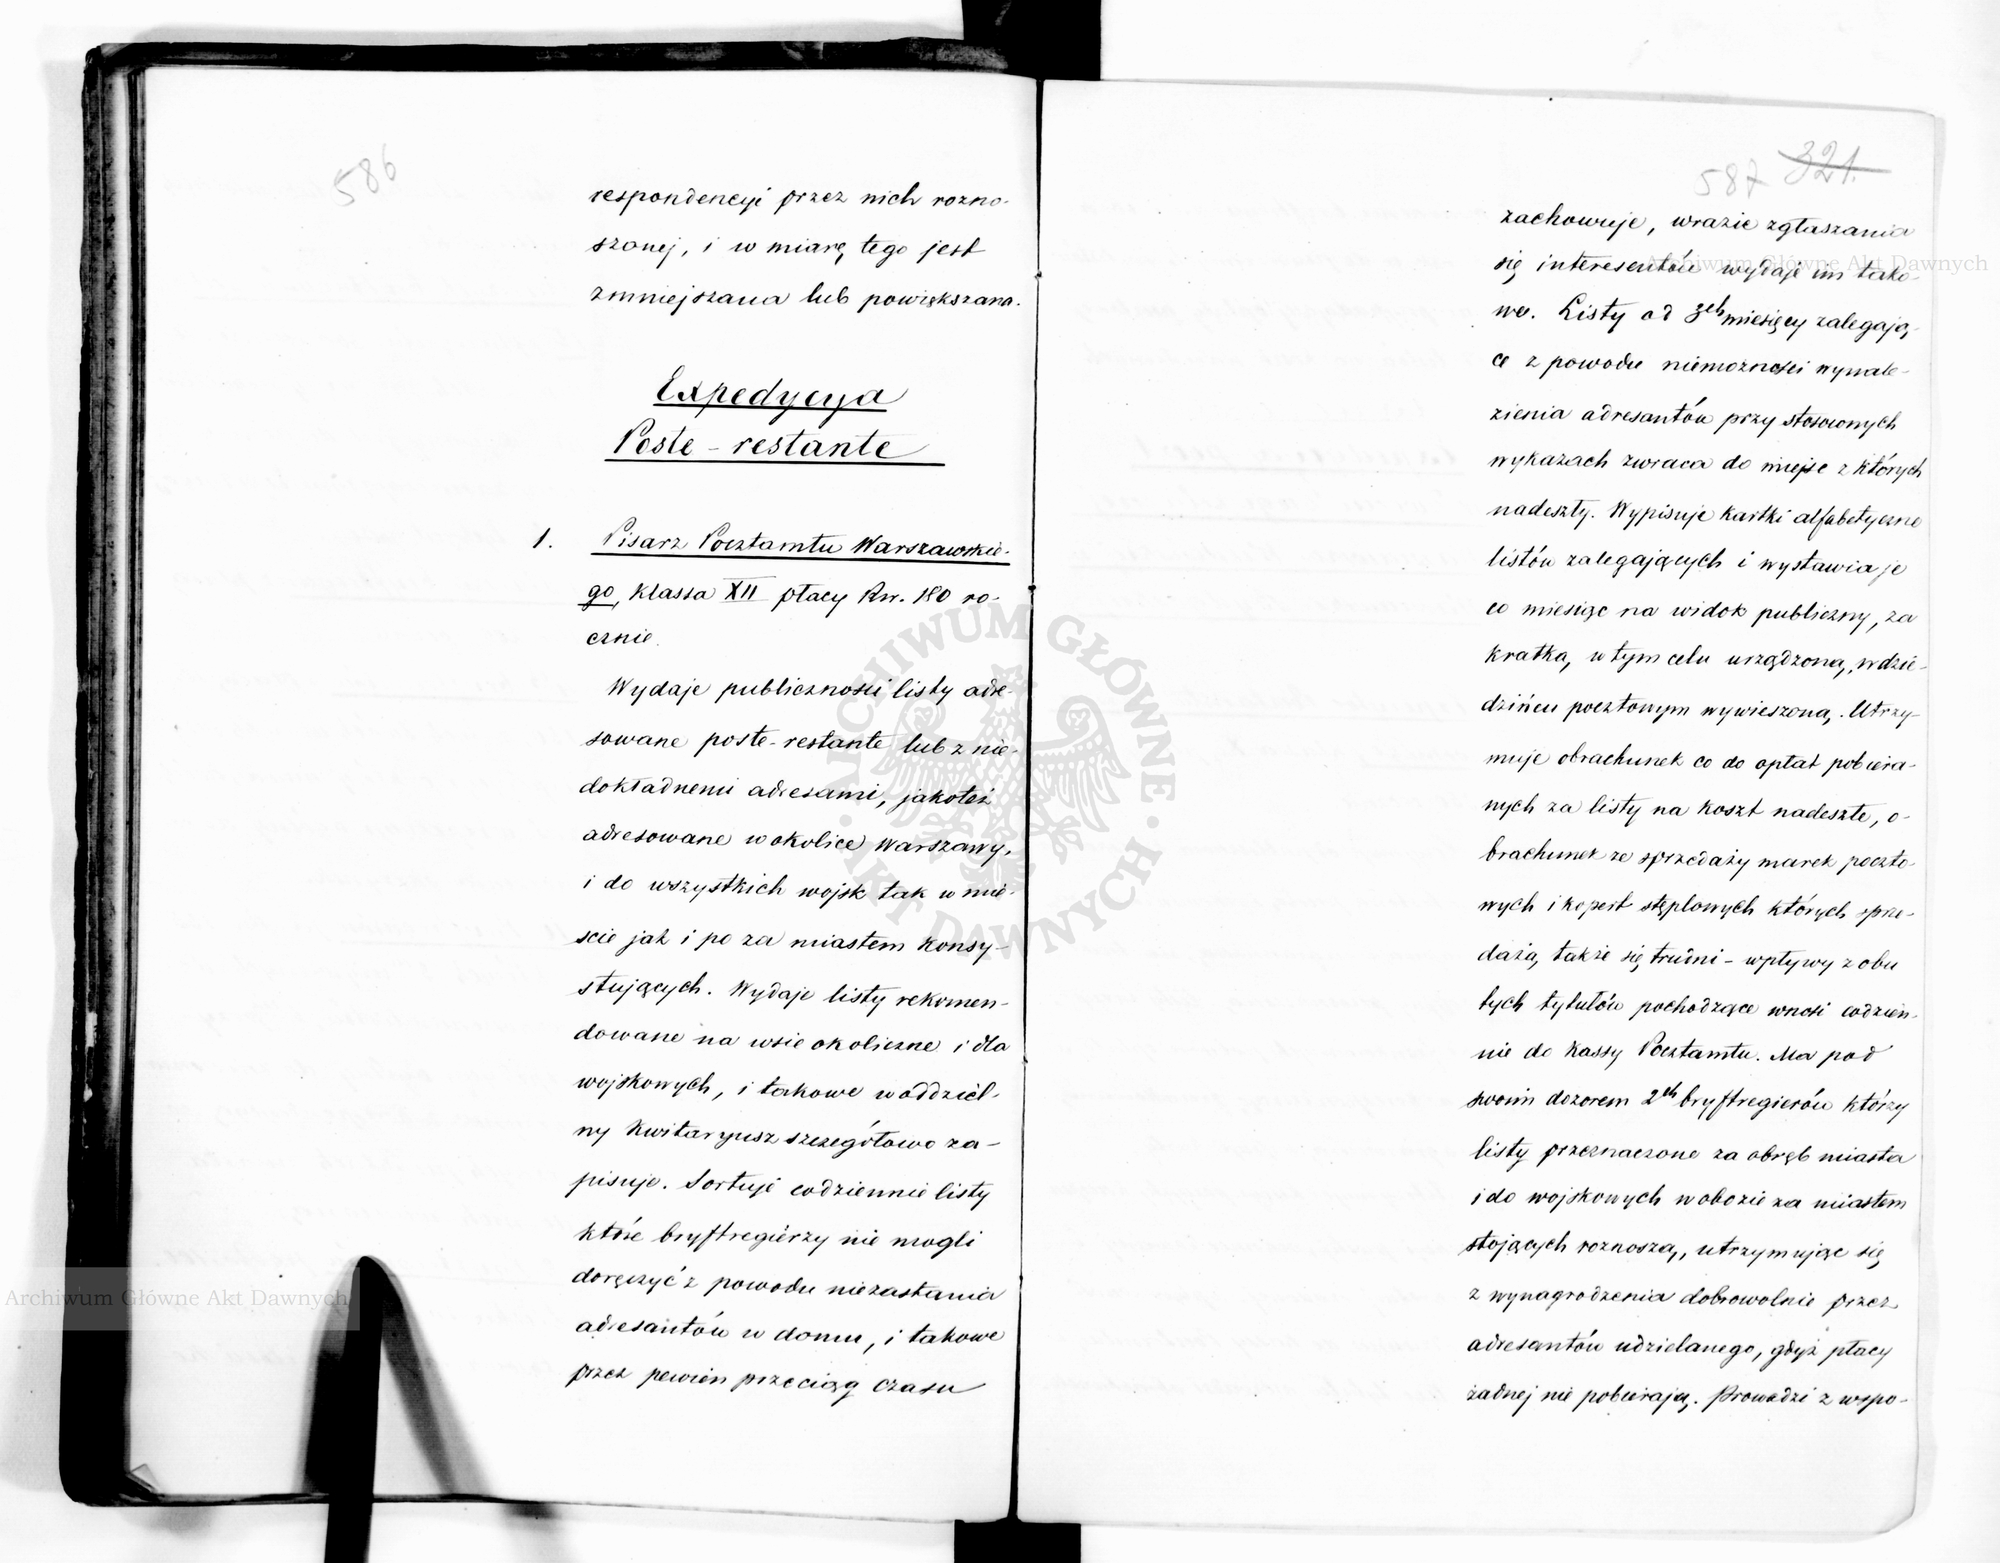 586
respondencyi przez nich rozno-
szonej, i w miarę tego jest
zmniejszana lub powiększana.
Expedycya
Poste-restante
1. Pisarz Pocztamtu Warszawskie-
go, klassa XII płacy Rsr. 180 ro-
cznie.
Wydaje publiczności listy adre-
sowane poste-restante lub z nie-
dokładnemi adresami, jakoteż
adresowane w okolice Warszawy,
i do wszystkich wojsk tak w mie-
ście jak i po za miastem konsy-
stujących. Wydaje listy rekomen-
dowane na wsie okoliczne i dla
wojskowych, i takowe w oddziel-
ny Kwitaryusz szczegółowo za-
pisuje. Sortuje codziennie listy
które bryftregierzy nie mogli
doręczyć z powodu niezastania
adresantów w domu, i takowe
przez pewien przeciąg czasu
587 321.
zachowuje, w razie zgłaszania
się interesentów wydaje im tako-
we. Listy od 3ch miesięcy zalegają-
ce z powodu niemożności wynale-
zienia adresantów przy stosownych
wykazach zwraca do miejsc z których
nadeszły. Wypisuje kartki alfabetyczne
listów zalegających i wystawia je
co miesiąc na widok publiczny, za
kratką, w tym celu urządzoną, w dzie-
dzińcu pocztowym wywieszoną. Utrzy-
muje obrachunek co do opłat pobiera-
nych za listy na koszt nadeszłe, o-
brachunek ze sprzedaży marek poczto-
wych i kopert stęplowych których sprze-
dażą także się trudni - wpływy z obu
tych tytułów pochodzące wnosi codzien-
nie do Kassy Pocztamtu. Ma pod
swoim dozorem 2ch bryftregierów którzy
listy przeznaczone za obręb miasta
i do wojskowych w obozie za miastem
stojących roznoszą, utrzymując się
z wynagrodzenia dobrowolnie przez
adresantów udzielanego, gdyż płacy
żadnej nie pobierają. Prowadzi z wspo-
Archiwum Główne Akt Dawnych
Archiwum Główne Akt Dawnych
ARCHIWUM GŁÓWNE · AKT DAWNYCH ·